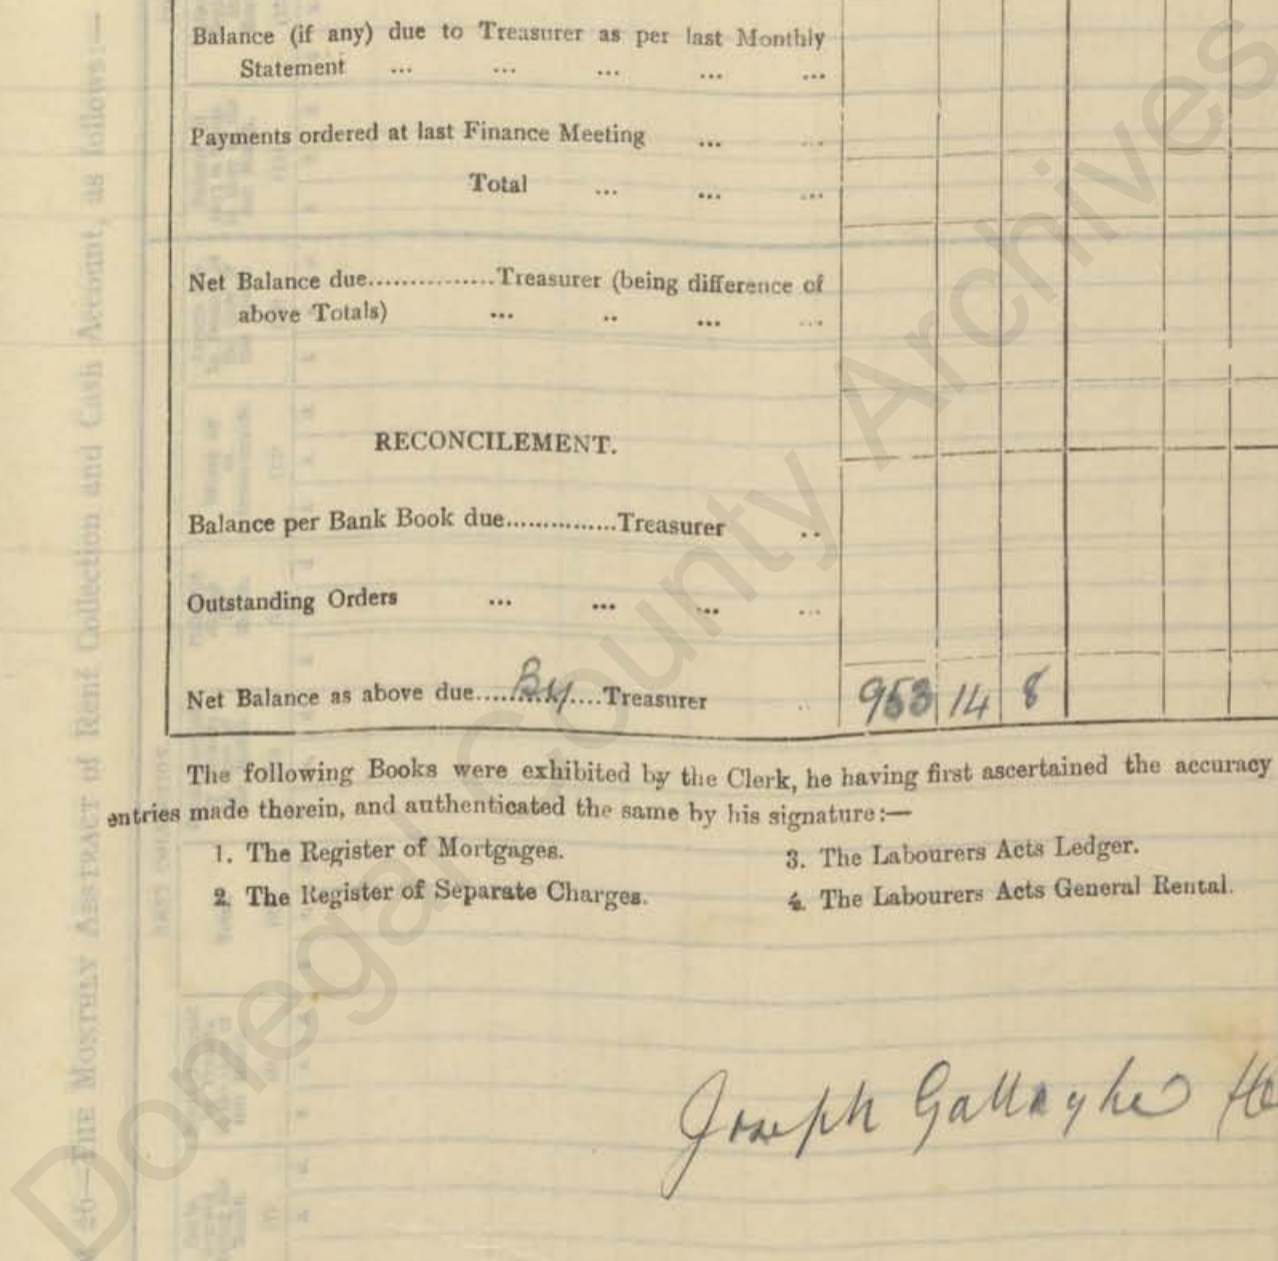 Balance (if any) due to Treasurer as per last Monthly
Statement ... ... ... ... ...
Payments ordered at last Finance Meeting ... ...
Total ... ... ...
Net Balance due...............Treasurer (being difference of
above Totals) ... .. ... ...
RECONCILEMENT.
Balance per Bank Book due...............Treasurer ..
Outstanding Orders ... ... ... ...
Net Balance as above due.....By....Treasurer .. 953 14 8
The following Books were exhibited by the Clerk, he having first ascertained the accuracy
entries made therein, and authenticated the same by his signature:—
1. The Register of Mortgages.
2. The Register of Separate Charges.
3. The Labourers Acts Ledger.
4. The Labourers Acts General Rental.
Joseph Gallagher
Donegal County Archives
26—THE MONTHLY ABSTRACT of Rent Collection and Cash Account, as follows:—